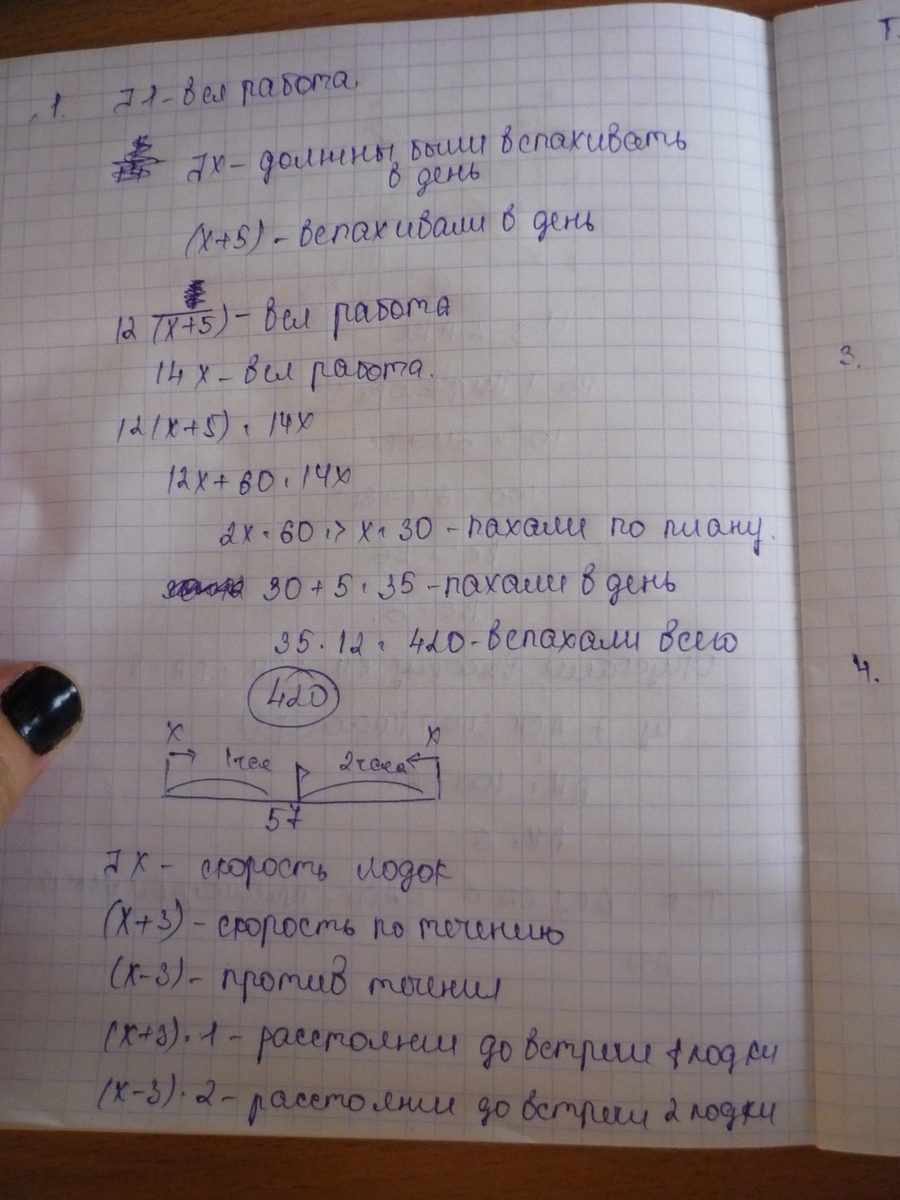 1. ] 1 - вся работа.
] x - должны были вспахивать
в день
(x+5) - вспахивали в день
12 (x+5) - вся работа
14 x - вся работа.
12(x+5) = 14x
12x + 60 = 14x
2x = 60 => x = 30 - пахали по плану.
30 + 5 = 35 - пахали в день
35 · 12 = 420 - вспахали всего
420
x x
1 час 2 часа
57
] x - скорость лодок
(x+3) - скорость по течению
(x-3) - против течения
(x+3) · 1 - расстоянии до встречи 1 лодки
(x-3) · 2 - расстоянии до встречи 2 лодки
3.
4.